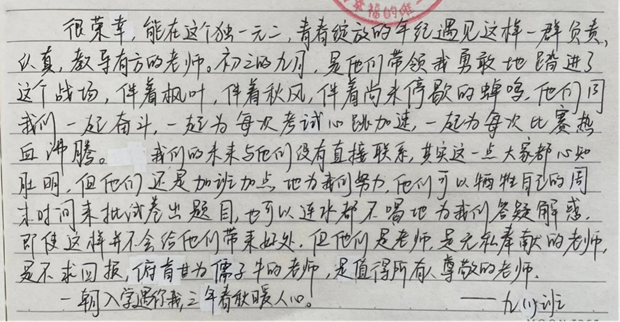 很荣幸,能在这个独一无二,青春绽放的年纪遇见这样一群负责,
认真,教导有方的老师。初三的九月,是他们带领我勇敢地踏进了
这个战场,伴着枫叶,伴着秋风,伴着尚未停歇的蝉鸣,他们同
我们一起奋斗,一起为每次考试心跳加速,一起为每次比赛热
血沸腾。 我们的未来与他们没有直接联系,其实这一点大家都心知
肚明,但他们还是加班加点地为我们努力,他们可以牺牲自己的周
末时间来批试卷出题目,也可以连水都不喝地为我们答疑解惑.
即使这样并不会给他们带来好处.但他们是老师,是无私奉献的老师,
是不求回报,俯首甘为孺子牛的老师,是值得所有人尊敬的老师.
一朝入学遇你我,三年春秋暖人心。 ——九(1)班